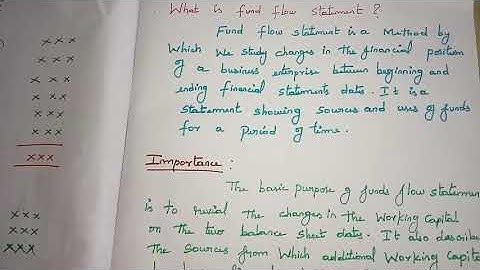 xxx
xxx
xx xx
xx xx
xx xx
xx xx
xxx
xxx
xxx
xxx
What is fund flow statement?
Fund flow statment is a Method by
Which We study changes in the financial position
of a business enterprise between beginning and
ending financial statements dates. It is a
statement showing sources and uses of funds
for a Period of time.
Importance:
The basic purpose of funds flow statemen
is to revial the changes in the Working Capital
on the two balance sheet dates. It also describe
The Sources from Which additional Working Capita